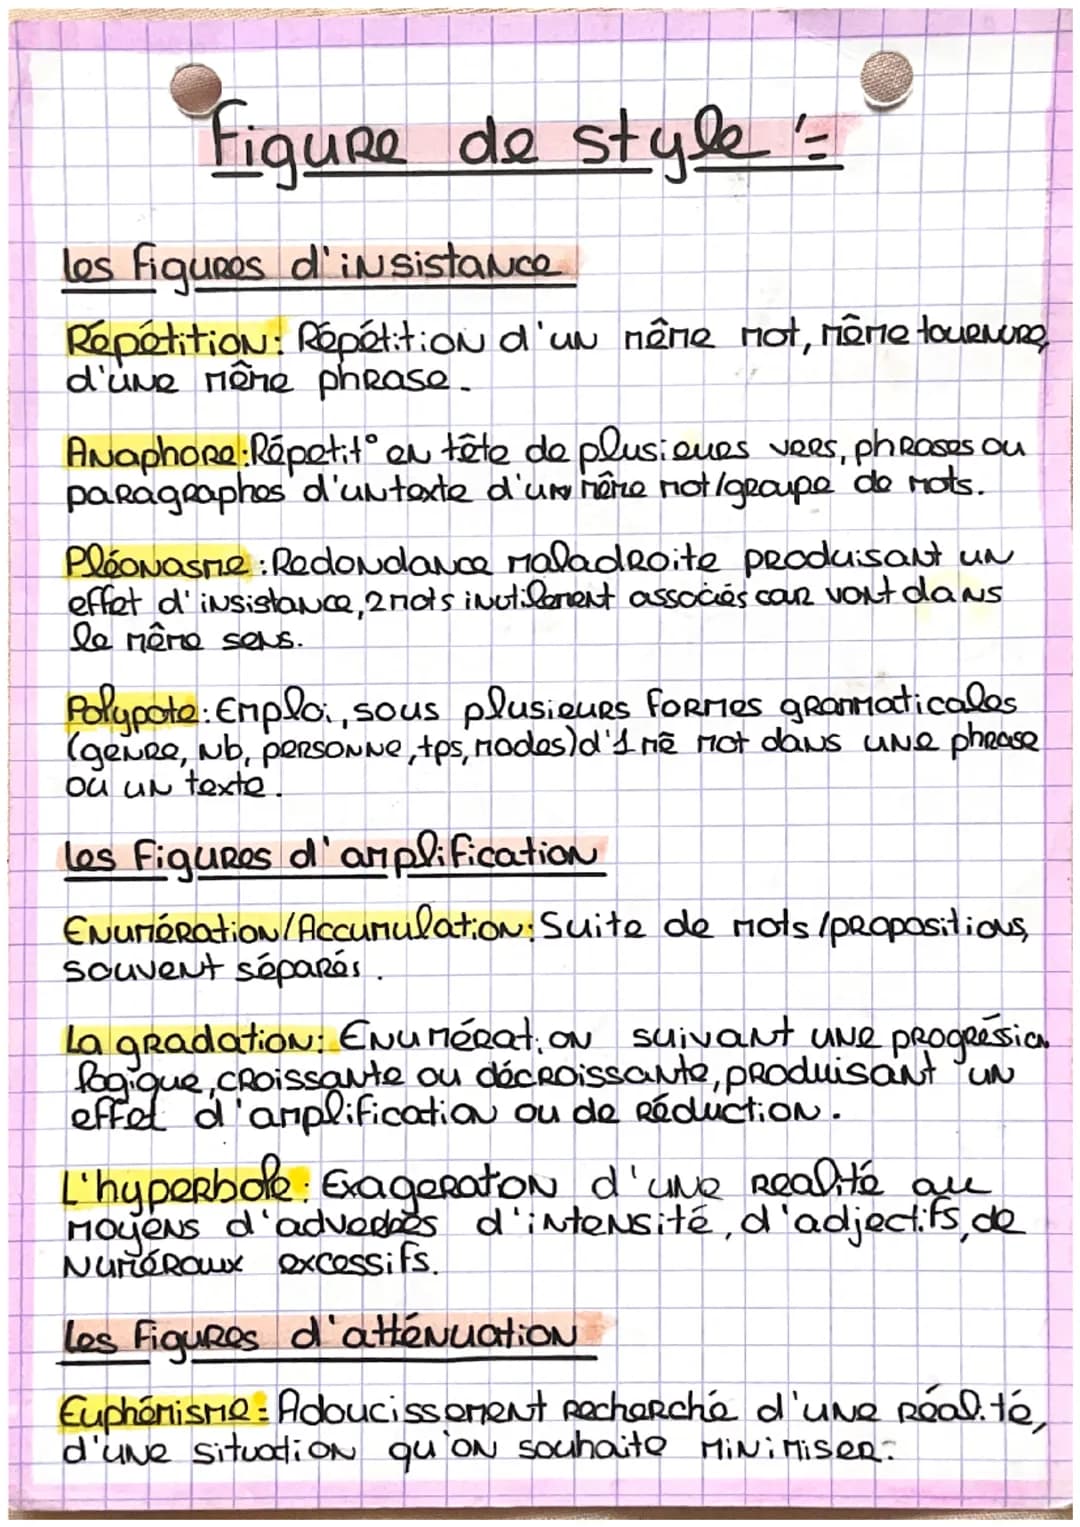 Figure de style :
Les figures d'insistance
Répétition: Répétition d'un même mot, même tournure,
d'une même phrase.
Anaphore: Répetit° en tête de plusieurs vers, phrases ou
paragraphes d'un texte d'un même mot/groupe de mots.
Pléonasme: Redondance maladroite produisant un
effet d'insistance, 2 mots inutilement associés car vont dans
le même sens.
Polypote: Emploi, sous plusieurs formes grammaticales
(genre, nb, personne, tps, modes) d'1 mê mot dans une phrase
ou un texte.
Les figures d'amplification
Enumération/Accumulation: Suite de mots/propositions,
souvent séparés.
La gradation: Enumération suivant une progrésion
logique, croissante ou décroissante, produisant un
effet d'amplification ou de réduction.
L'hyperbole: Exageraton d'une realité au
moyens d'adverbes d'intensité, d'adjectifs, de
numéraux excessifs.
Les figures d'atténuation
Euphémisme: Adoucissement recherché d'une réalité,
d'une situation qu'on souhaite minimiser.